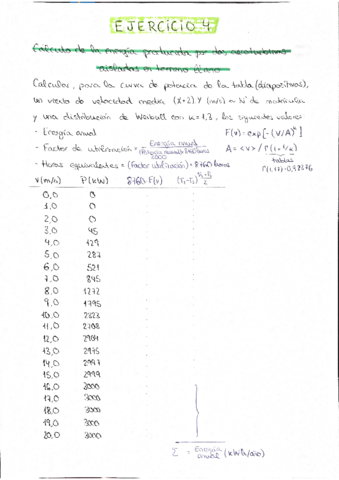 EJERCICIO 4
Cálculo de la energía producida por dos aerodinámos
aislados en terreno llano
Calcular, para la curva de potencia de la tabla (diapositivas),
un viento de velocidad media (x+2) Y (m/s) = Nº de matrícula
y una distribución de Weibull con k=1,3, los siguientes valores
- Energía anual F(v) = exp[-(V/A)ᵏ]
- Factor de utilización = Energía anual A = <v> / Γ(1+1/k)
3000 tablas
- Horas equivalentes = (Factor utilización) · 8760 horas
V(m/s) P(kW) 8760·F(v)
0,0 0
1,0 0
2,0 0
3,0 45
4,0 129
5,0 287
6,0 521
7,0 845
8,0 1272
9,0 1795
10,0 2323
11,0 2708
12,0 2901
13,0 2975
14,0 2997
15,0 2999
16,0 3000
17,0 3000
18,0 3000
19,0 3000
20,0 3000
Σ = Energía anual (kWh/año)